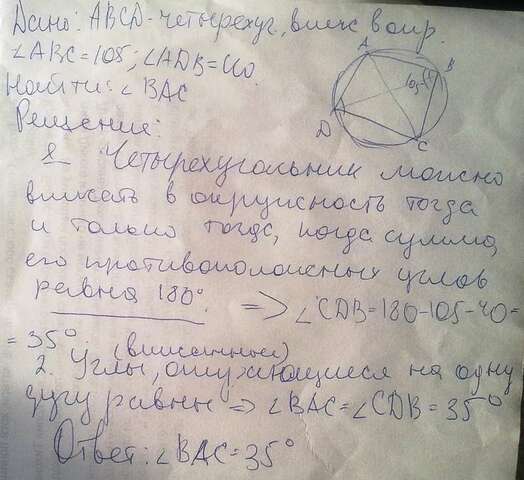 Дано: ABCD-четырехуг, впис в окр.
∠ABC=105; ∠ADB=40.
Найти: ∠BAC
Решение:
A
B
105
D
C
Четырехугольник можно
вписать в окружность тогда
и только тогда, когда сумма
его противоположных углов
равна 180°. => ∠CDB=180-105-40=
= 35°. (вписанные)
2. Углы, опирающиеся на одну
дугу равны => ∠BAC=∠CDB=35°
Ответ: ∠BAC=35°